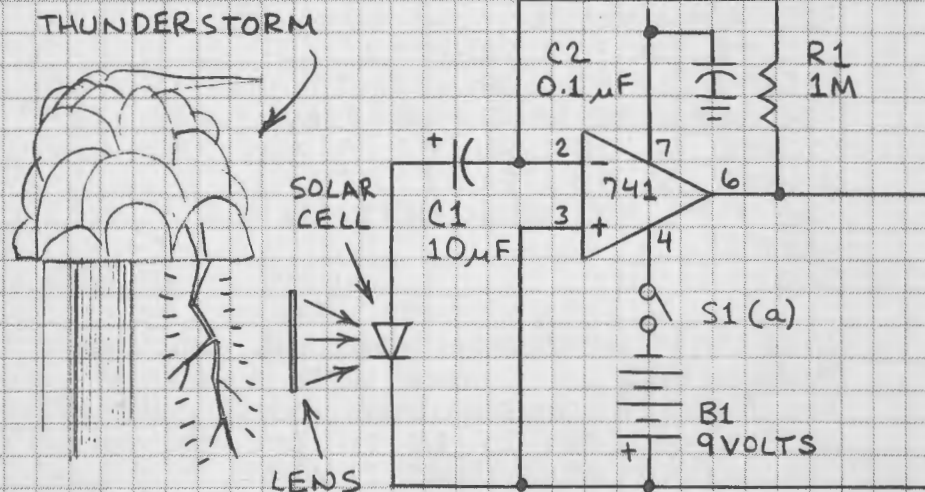 THUNDERSTORM
C2
0.1 µF
R1
1M
+
2
-
7
741
6
SOLAR
CELL
C1
10µF
3
+
4
S1 (a)
B1
9 VOLTS
+
LENS